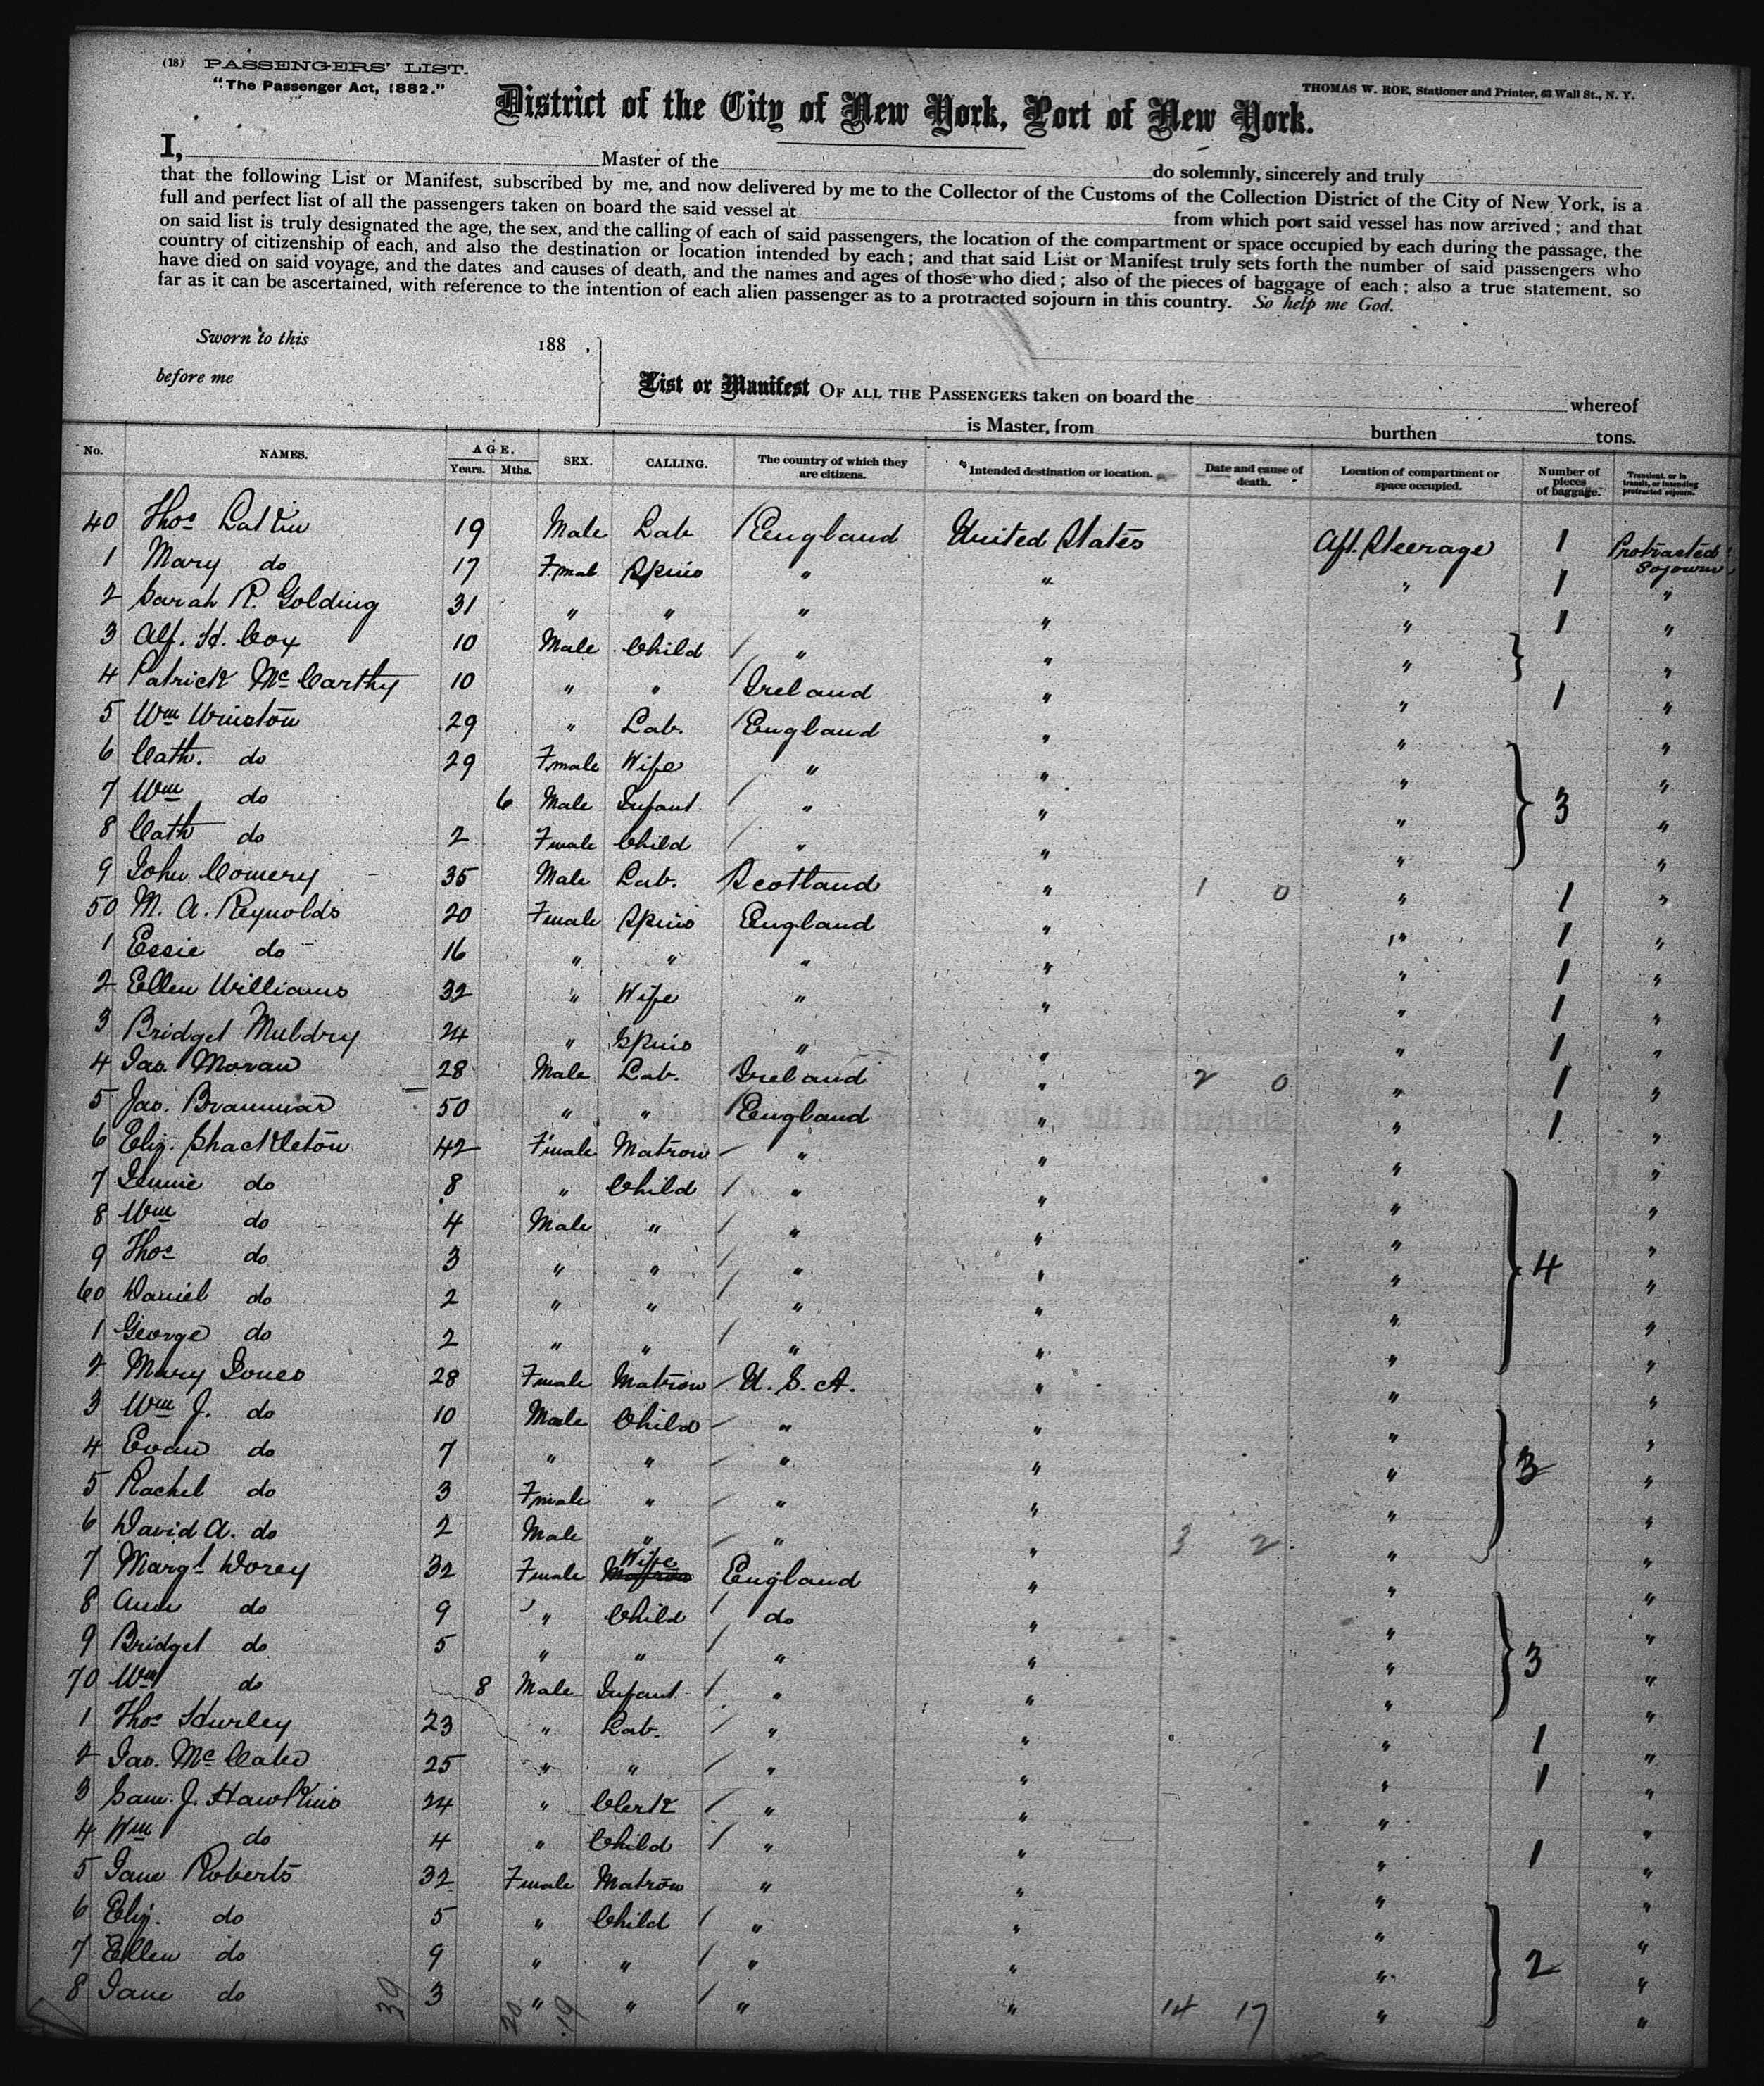 (18) PASSENGERS' LIST.
"The Passenger Act, 1882."
THOMAS W. ROE, Stationer and Printer, 63 Wall St., N. Y.
District of the City of New York, Port of New York.
I, Master of the do solemnly, sincerely and truly
that the following List or Manifest, subscribed by me, and now delivered by me to the Collector of the Customs of the Collection District of the City of New York, is a
full and perfect list of all the passengers taken on board the said vessel at from which port said vessel has now arrived; and that
on said list is truly designated the age, the sex, and the calling of each of said passengers, the location of the compartment or space occupied by each during the passage, the
country of citizenship of each, and also the destination or location intended by each; and that said List or Manifest truly sets forth the number of said passengers who
have died on said voyage, and the dates and causes of death, and the names and ages of those who died; also of the pieces of baggage of each; also a true statement, so
far as it can be ascertained, with reference to the intention of each alien passenger as to a protracted sojourn in this country. So help me God.
Sworn to this 188 .
before me
List or Manifest OF ALL THE PASSENGERS taken on board the whereof
is Master, from burthen tons.
No. NAMES. AGE. Years. Mths. SEX. CALLING. The country of which they are citizens. Intended destination or location. Date and cause of death. Location of compartment or space occupied. Number of pieces of baggage. Transient, or in transit, or intending protracted sojourn.
40 Thos 19 Male Lab / England United States Aft. Steerage 1 Protracted Sojourn
1 Mary do 17 Fmal Spins " " " 1 "
2 Sarah R. Golding 31 " " " " " 1 "
3 Alf. H. Cox 10 Male Child / " " " "
4 Patrick Mc Carthy 10 " " / Ireland " " 1 "
5 Wm Winston 29 " Lab. / England " " "
6 Cath. do 29 Fmale Wife " " " "
7 Wm do 6 Male Infant / " " " 3 "
8 Cath do 2 Female Child / " " " "
9 John Comery 35 Male Lab. Scotland " 1 0 " 1 "
50 M. A. Reynolds 20 Female Spins England " " 1 "
1 Essie do 16 " " " " " 1 "
2 Ellen Williams 32 " Wife " " " 1 "
3 Bridget Muldry 24 " Spins " " " 1 "
4 Jas. Moran 28 Male Lab. Ireland " 2 0 " 1 "
5 Jas. 50 " " / England " " 1 "
6 Eliz. Shackleton 42 Female Matron / " " " "
7 Jennie do 8 " Child / " " " "
8 Wm do 4 Male " / " " " "
9 Thos do 3 " " / " " " 4 "
60 Daniel do 2 " " / " " " "
1 George do 2 " " / " " " "
2 Mary Jones 28 Female Matron / U. S. A. " " "
3 Wm J. do 10 Male Child / " " " "
4 Evan do 7 " " / " " " 3 "
5 Rachel do 3 Fmale " / " " " "
6 David A. do 2 Male " / " " 3 2 " "
7 Margt Dorey 32 Female Wife England " " "
8 Ann do 9 " Child / do " " "
9 Bridget do 5 " " / " " " 3 "
70 Wm do 8 Male Infant / " " " "
1 Thos Hurley 23 " Lab. / " " " 1 "
2 Jas. Mc Cabe 25 " " / " " " 1 "
3 Sam. J. Hawkins 24 " Clerk / " " " "
4 Wm do 4 " Child / " " " 1 "
5 Jane Roberts 32 Female Matron " " " "
6 Eliz. do 5 " Child / " " " "
7 Ellen do 9 " " / " " " 2 "
8 Jane do 3 " " / " " 14 17 " "
39 20 19